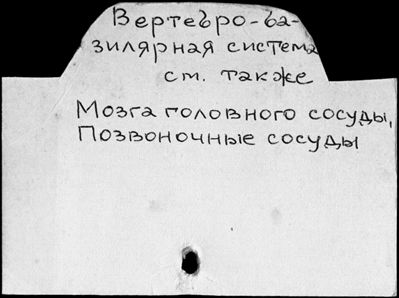 Вертебро-ба-
зилярная система
см. также
Мозга головного сосуды,
Позвоночные сосуды